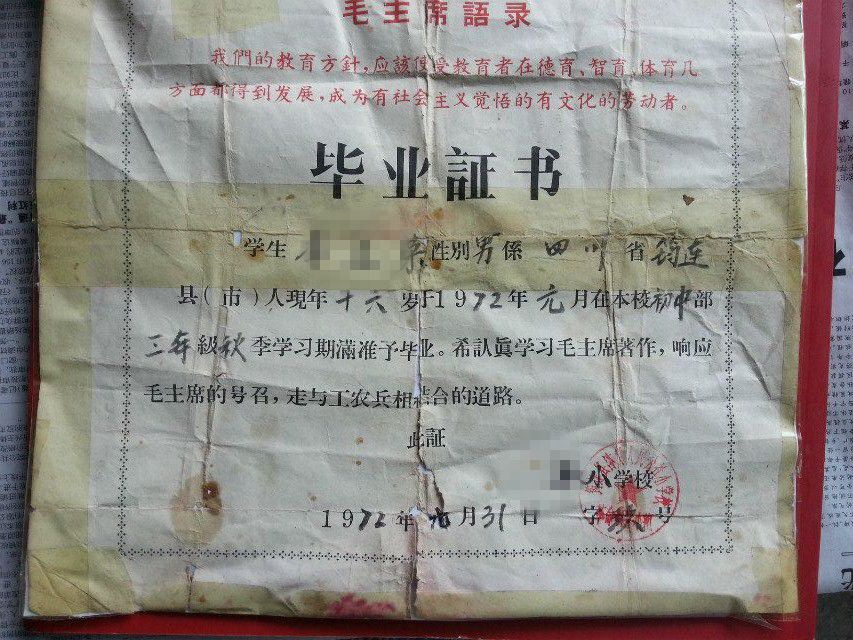 毛主席語录
我們的教育方針,应該使受教育者在德育、智育、体育几
方面都得到发展,成为有社会主义覚悟的有文化的劳动者。
毕业証书
学生 性別男係四川省筠连
县(市)人現年十六岁于1972年元月在本校初中部
三年級秋季学习期滿准予毕业。希認眞学习毛主席著作,响应
毛主席的号召,走与工农兵相結合的道路。
此証
小学校
1972年元月31日 字 号